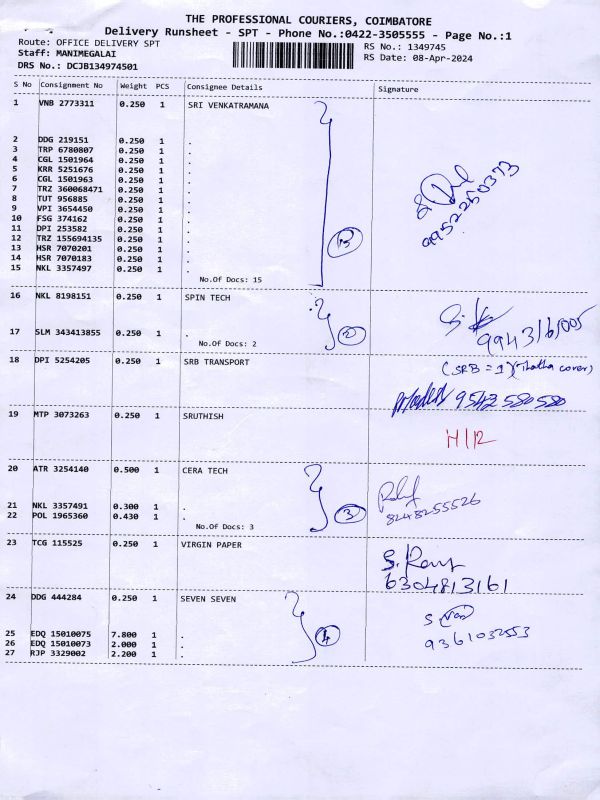 THE PROFESSIONAL COURIERS, COIMBATORE
Delivery Runsheet - SPT - Phone No.:0422-3505555 - Page No.:1
Route: OFFICE DELIVERY SPT
RS No.: 1349745
Staff: MANIMEGALAI
RS Date: 08-Apr-2024
DRS No.: DCJB134974501
S No Consignment No Weight PCS Consignee Details Signature
1 VNB 2773311 0.250 1 SRI VENKATRAMANA
2 DDG 219151 0.250 1 .
3 TRP 6780807 0.250 1 .
4 CGL 1501964 0.250 1 .
5 KRR 5251676 0.250 1 .
6 CGL 1501963 0.250 1 .
7 TRZ 360068471 0.250 1 .
8 TUT 956885 0.250 1 .
9 VPI 3654450 0.250 1 .
10 FSG 374162 0.250 1 .
11 DPI 253582 0.250 1 .
12 TRZ 155694135 0.250 1 .
13 HSR 7070201 0.250 1 .
14 HSR 7070183 0.250 1 .
15 NKL 3357497 0.250 1 .
9952250373
No.Of Docs: 15
16 NKL 8198151 0.250 1 SPIN TECH
17 SLM 343413855 0.250 1 .
2
9943161005
No.Of Docs: 2
18 DPI 5254205 0.250 1 SRB TRANSPORT
(SRB = 1) (Thatha cover)
9542580580
19 MTP 3073263 0.250 1 SRUTHISH
20 ATR 3254140 0.500 1 CERA TECH
21 NKL 3357491 0.300 1 .
22 POL 1965360 0.430 1 .
3
8248255526
No.Of Docs: 3
23 TCG 115525 0.250 1 VIRGIN PAPER
6304813161
24 DDG 444284 0.250 1 SEVEN SEVEN
25 EDQ 15010075 7.800 1 .
26 EDQ 15010073 2.000 1 .
27 RJP 3329002 2.200 1 .
4
9361032553